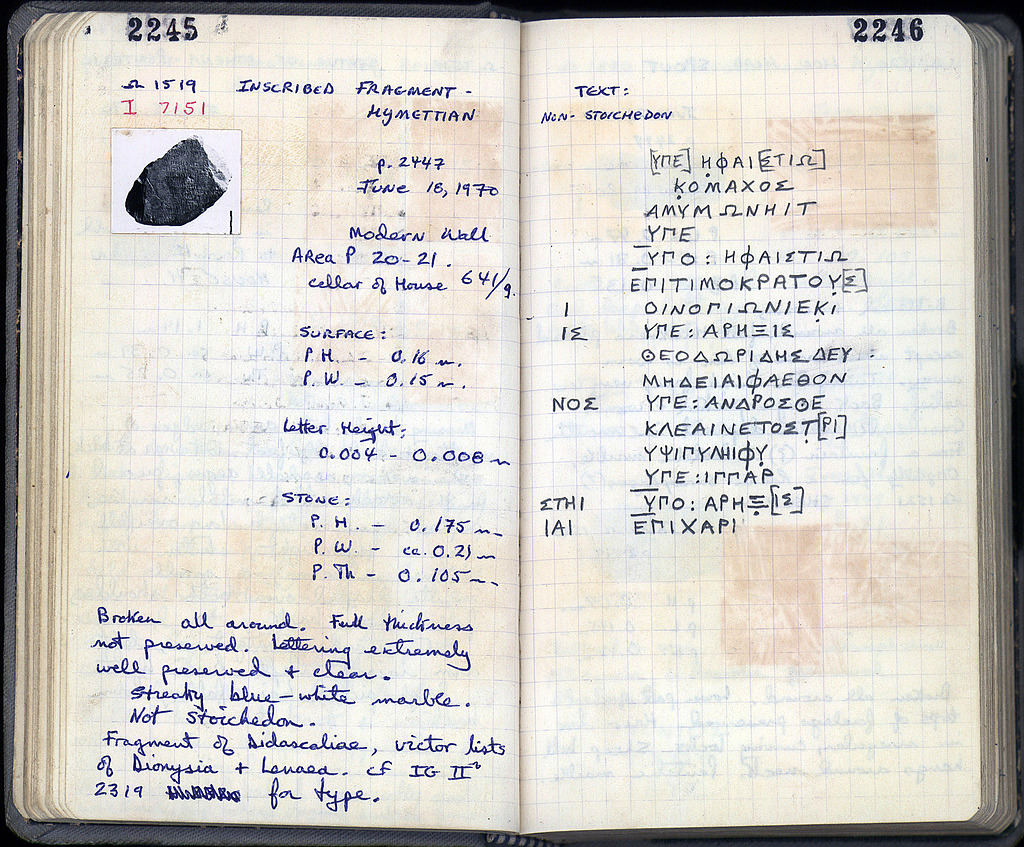 2245
Ω 1519 INSCRIBED FRAGMENT -
I 7151 HYMETTIAN
p. 2447
JUNE 18, 1970
Modern Wall
Area P 20-21.
cellar of House 641/9.
SURFACE:
P.H. - 0.16 m.
P.W. - 0.15 m.
Letter Height:
0.004 - 0.008 m
STONE:
P. H. - 0.175 m.
P. W. - ca. 0.21 m
P. Th - 0.105 m.
Broken all around. Full thickness
not preserved. Lettering extremely
well preserved + clear.
Streaky blue-white marble.
Not Stoichedon.
Fragment of Didascaliae, victor lists
of Dionysia + Lenaea. cf IG II²
2319 for type.
2246
TEXT:
NON-STOICHEDON
[ΥΠΕ] ΗΦΑΙ[ΣΤΙΩ]
ΚΟΜΑΧΟΣ
ΑΜΥΜΩΝΗΙΤ
ΥΠΕ
ΥΠΟ : ΗΦΑΙΣΤΙΩ
ΕΠΙΤΙΜΟΚΡΑΤΟΥ[Σ]
Ι ΟΙΝΟΠΙΩΝΙΕΚΙ
ΙΣ ΥΠΕ : ΑΡΗΞΙΣ
ΘΕΟΔΩΡΙΔΗΣΔΕΥ :
ΜΗΔΕΙΑΙΦΑΕΘΟΝ
ΝΟΣ ΥΠΕ : ΑΝΔΡΟΣΘΕ
ΚΛΕΑΙΝΕΤΟΣΤ[ΡΙ]
ΥΨΙΠΥΛΗΙΦΥ
ΥΠΕ : ΙΠΠΑΡ
ΣΤΗΙ ΥΠΟ : ΑΡΗΞ[ΙΣ]
ΙΑΙ ΕΠΙΧΑΡΙ